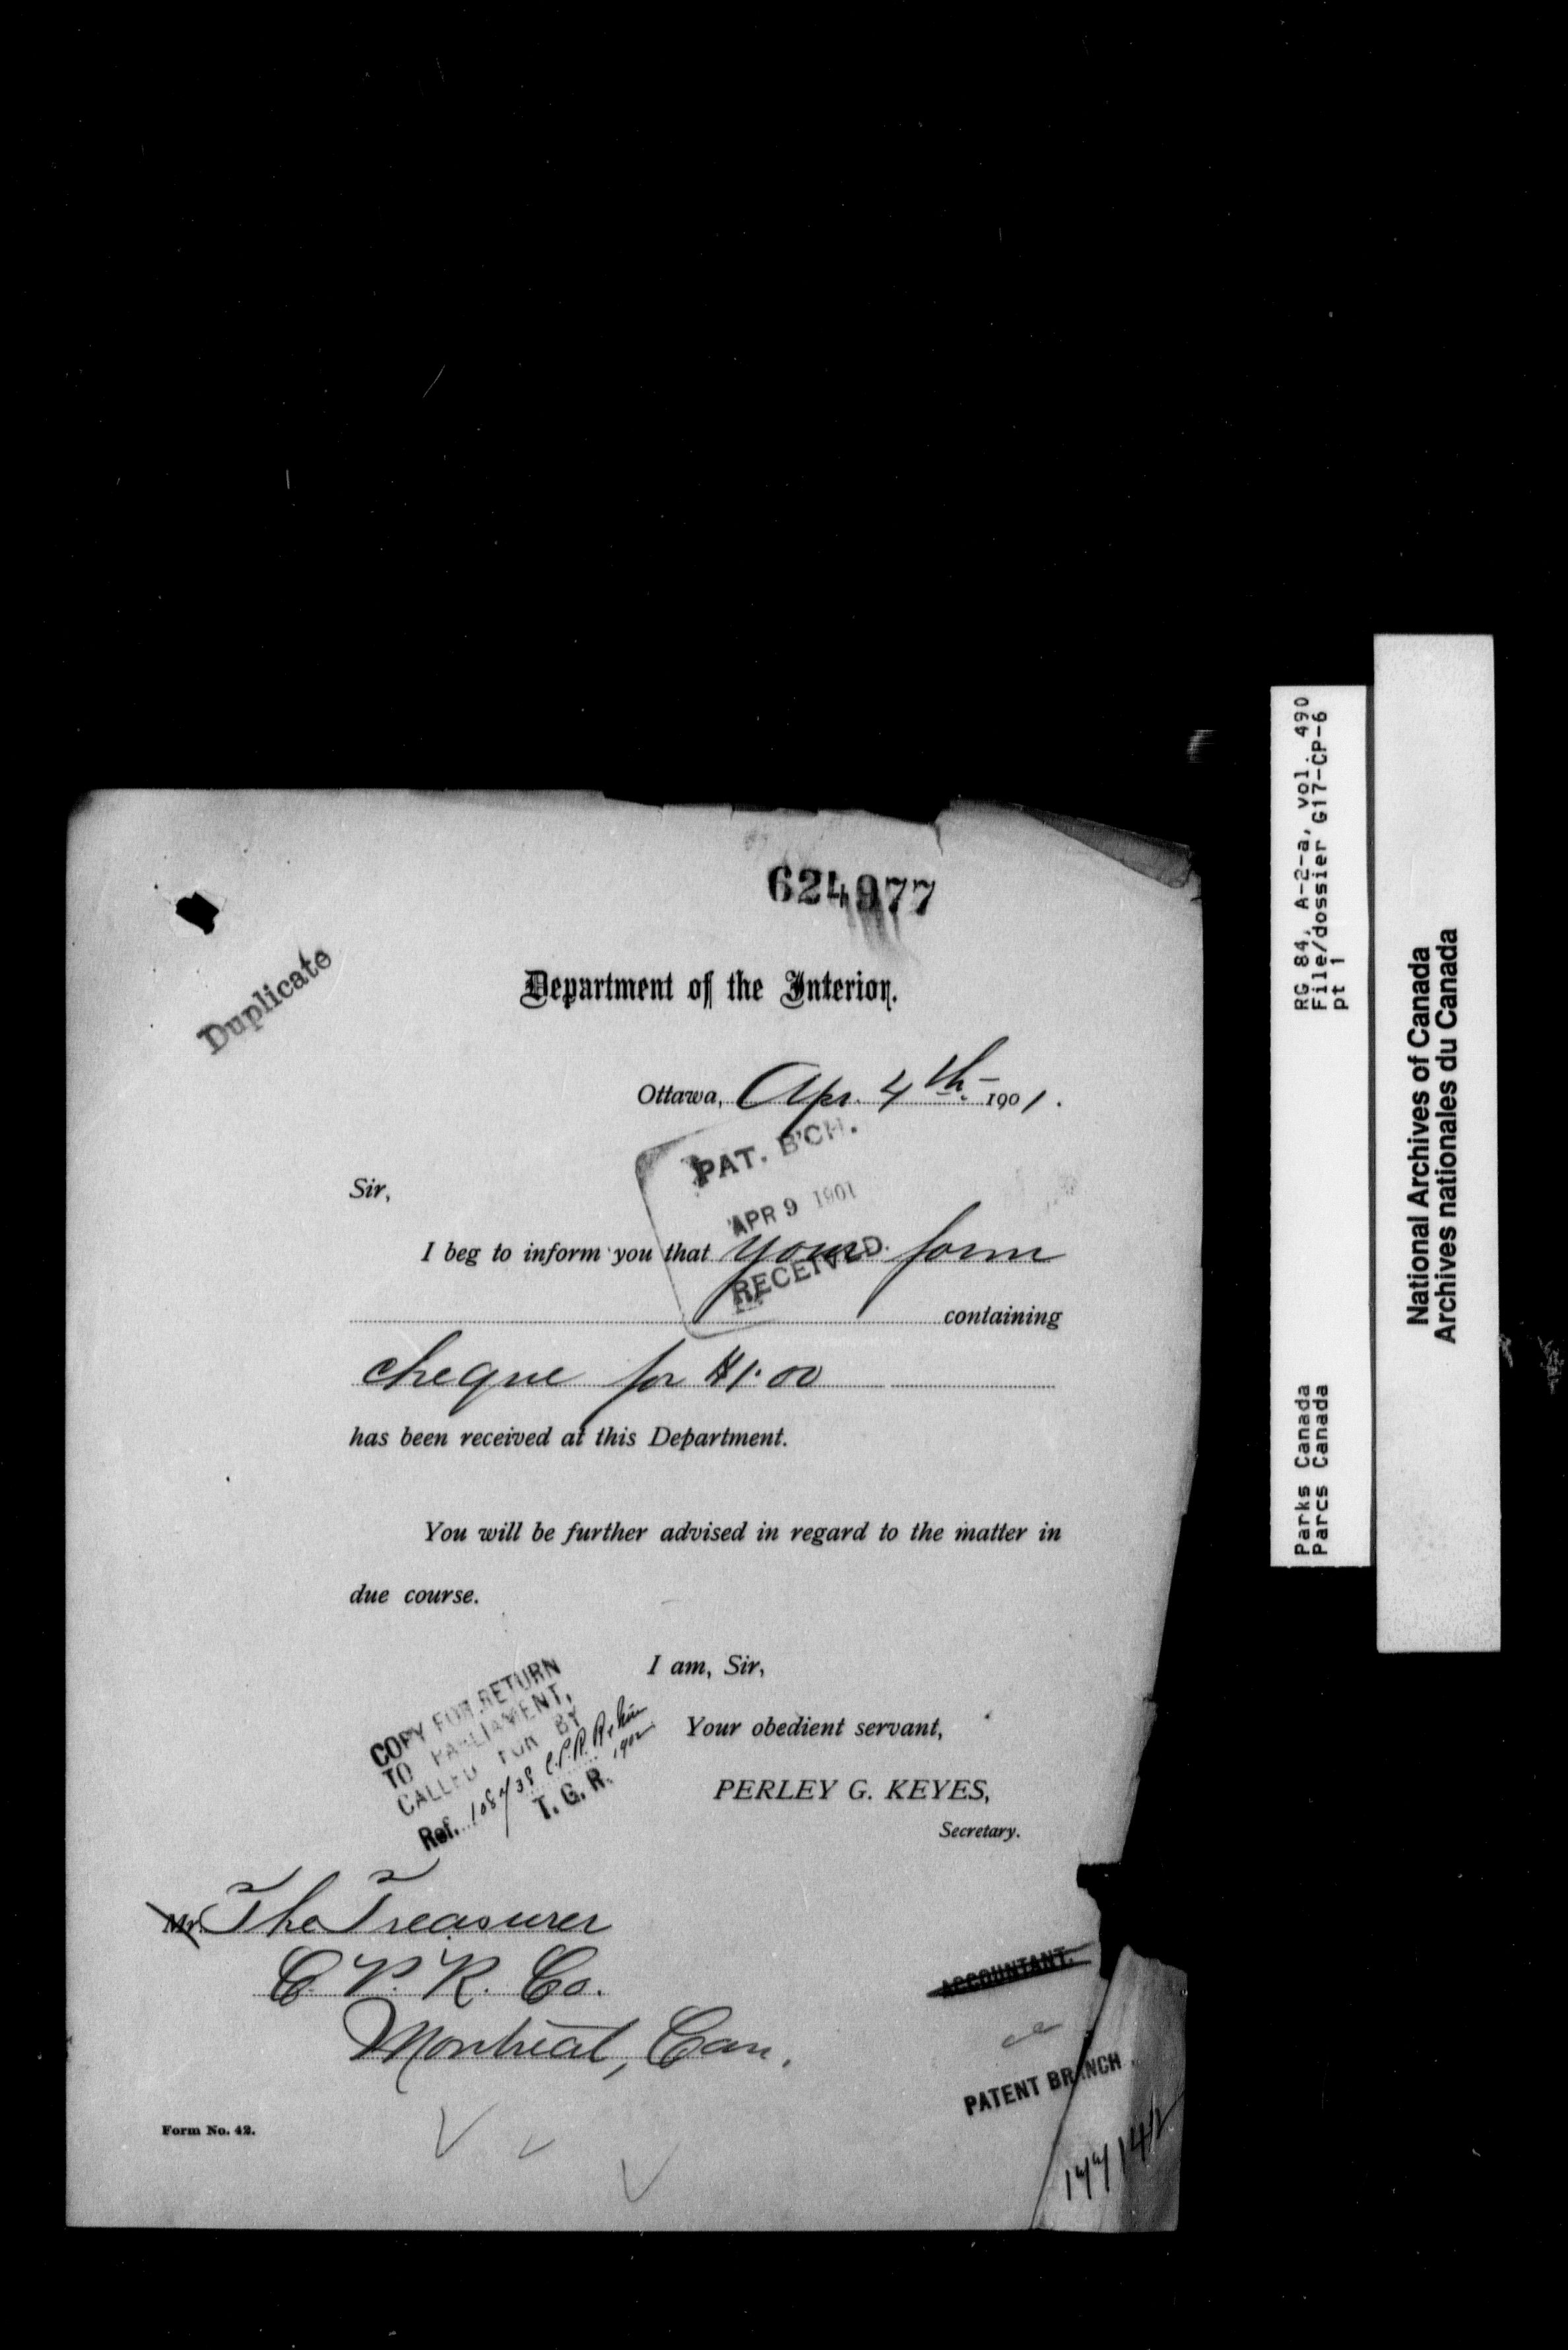 624977
Duplicate
Department of the Interior.
Ottawa, Apr. 4th. 1901.
PAT. B'CH.
APR 9 1901
RECEIVED
Sir,
I beg to inform you that your form
containing
cheque for $1.00
has been received at this Department.
You will be further advised in regard to the matter in
due course.
I am, Sir,
Your obedient servant,
PERLEY G. KEYES,
Secretary.
COPY FOR RETURN
TO PARLIAMENT,
CALLED FOR BY
Ref. C.P.R. 1902
T. G. R.
Mr. The Treasurer
C. P. R. Co.
Montreal, Can.
ACCOUNTANT.
PATENT BRANCH
Form No. 42.
RG 84, A-2-a, vol. 490
File/dossier G17-CP-6
pt 1
Parks Canada
Parcs Canada
National Archives of Canada
Archives nationales du Canada